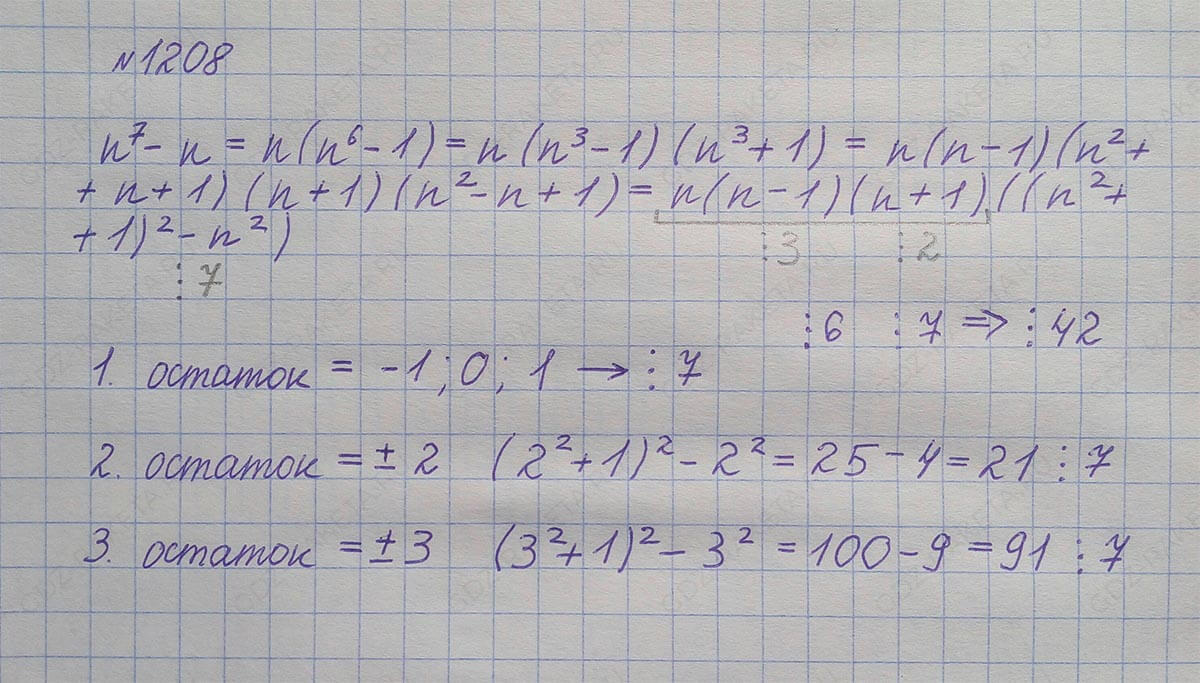 №1208
n⁷ - n = n(n⁶ - 1) = n(n³ - 1)(n³ + 1) = n(n - 1)(n² +
+ n + 1)(n + 1)(n² - n + 1) = n(n - 1)(n + 1)((n² +
+ 1)² - n²) ⋮3 ⋮2
⋮7
⋮6 ⋮7 => ⋮42
1. остаток = -1; 0; 1 → ⋮7
2. остаток = ± 2 (2² + 1)² - 2² = 25 - 4 = 21 ⋮7
3. остаток = ± 3 (3² + 1)² - 3² = 100 - 9 = 91 ⋮7